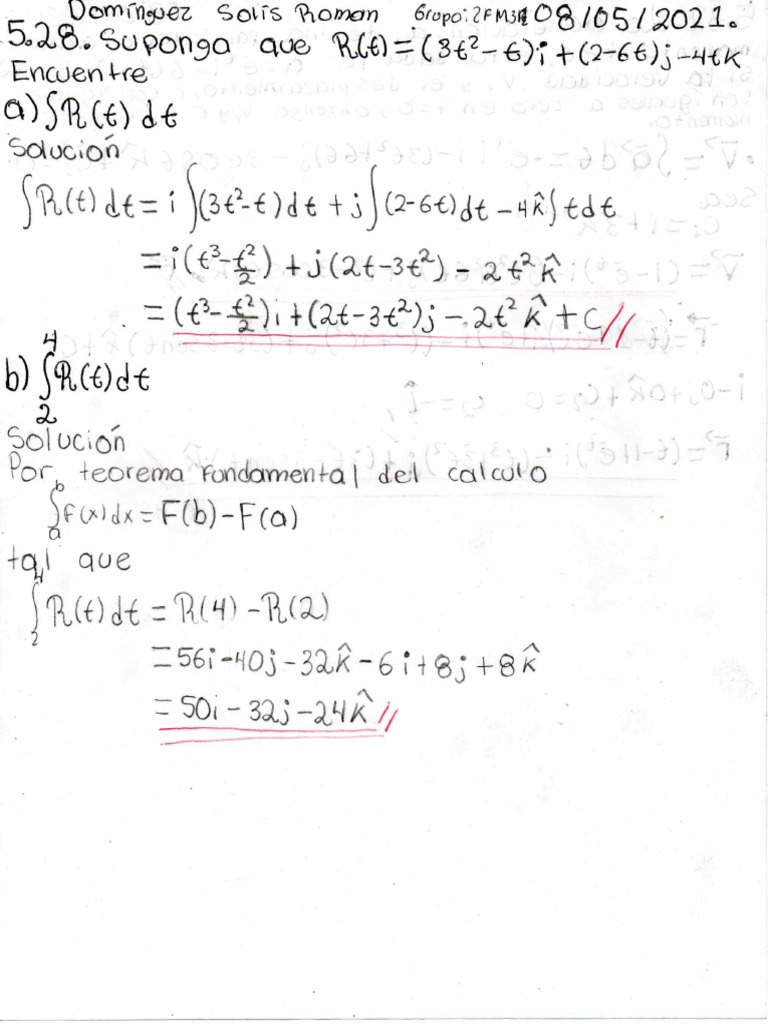 Domínguez Solis Roman Grupo: 2FM3 08/05/2021.
5.28. Suponga que R(t) = (3t²-t)i+(2-6t)j-4tk
Encuentre
a) ∫R(t) dt
Solución
∫R(t) dt = i∫(3t²-t)dt + j∫(2-6t)dt - 4k̂∫tdt
= i(t³-t²/2) + j(2t-3t²) - 2t²k̂
= (t³-t²/2)i+(2t-3t²)j-2t²k̂+C//
b) ∫₂⁴R(t)dt
Solución
Por teorema fundamental del calculo
∫ₐᵇf(x)dx = F(b)-F(a)
tal que
∫₂⁴R(t)dt = R(4)-R(2)
= 56i-40j-32k̂-6i+8j+8k̂
= 50i-32j-24k̂//